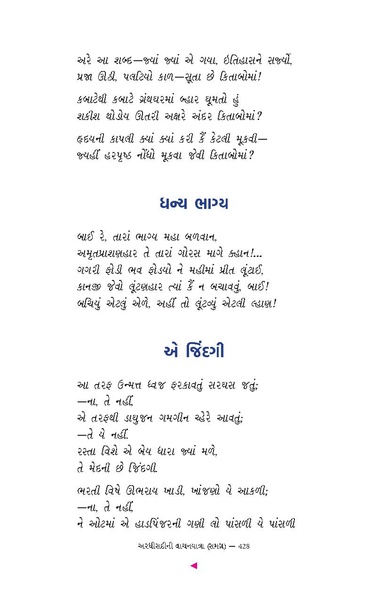 અરે આ શબ્દ—જ્યાં જ્યાં એ ગયા, ઇતિહાસને સર્જ્યો,
પ્રજા ઊઠી, પલટિયો કાળ—સૂતા છે કિતાબોમાં!
કબાટેથી કબાટે ગ્રંથઘરમાં બ્હાર ઘૂમતો હું
શકીશ થોડોય ઊતરી અક્ષરે અંદર કિતાબોમાં?
હૃદયની કાપલી ક્યાં ક્યાં કરી કૈં કેટલી મૂકવી—
જ્યહીં હરપૃષ્ઠ નોંધો મૂકવા જેવી કિતાબોમાં?
ધન્ય ભાગ્ય
બાઈ રે, તારાં ભાગ્ય મહા બળવાન,
અમૃતપ્રાશણહાર તે તારાં ગોરસ માગે ક્હાન!...
ગગરી ફોડી ભવ ફોડયો ને મહીમાં પ્રીત લૂંટાઈ,
કાનજી જેવો લૂંટણહાર ત્યાં કૈં ન બચાવવું, બાઈ!
બચિયું એટલું એળે, અહીં તો લૂંટવ્યું એટલી લ્હાણ!
એ જિંદગી
આ તરફ ઉન્મત્ત ધ્વજ ફરકાવતું સરઘસ જતું;
—ના, તે નહીં,
એ તરફથી ડાઘુજન ગમગીન ચ્હેરે આવતું;
—તે યે નહીં.
રસ્તા વિશે એ બેય ધારા જ્યાં મળે,
તે મેદની છે જિંદગી.
ભરતી વિષે ઊભરાય ખાડી, ખાંજણો યે આકળી;
—ના, તે નહીં.
ને ઓટમાં એ હાડપિંજરની ગણી લો પાંસળી યે પાંસળી
અરધીસદીની વાચનયાત્રા (સમગ્ર) — 428